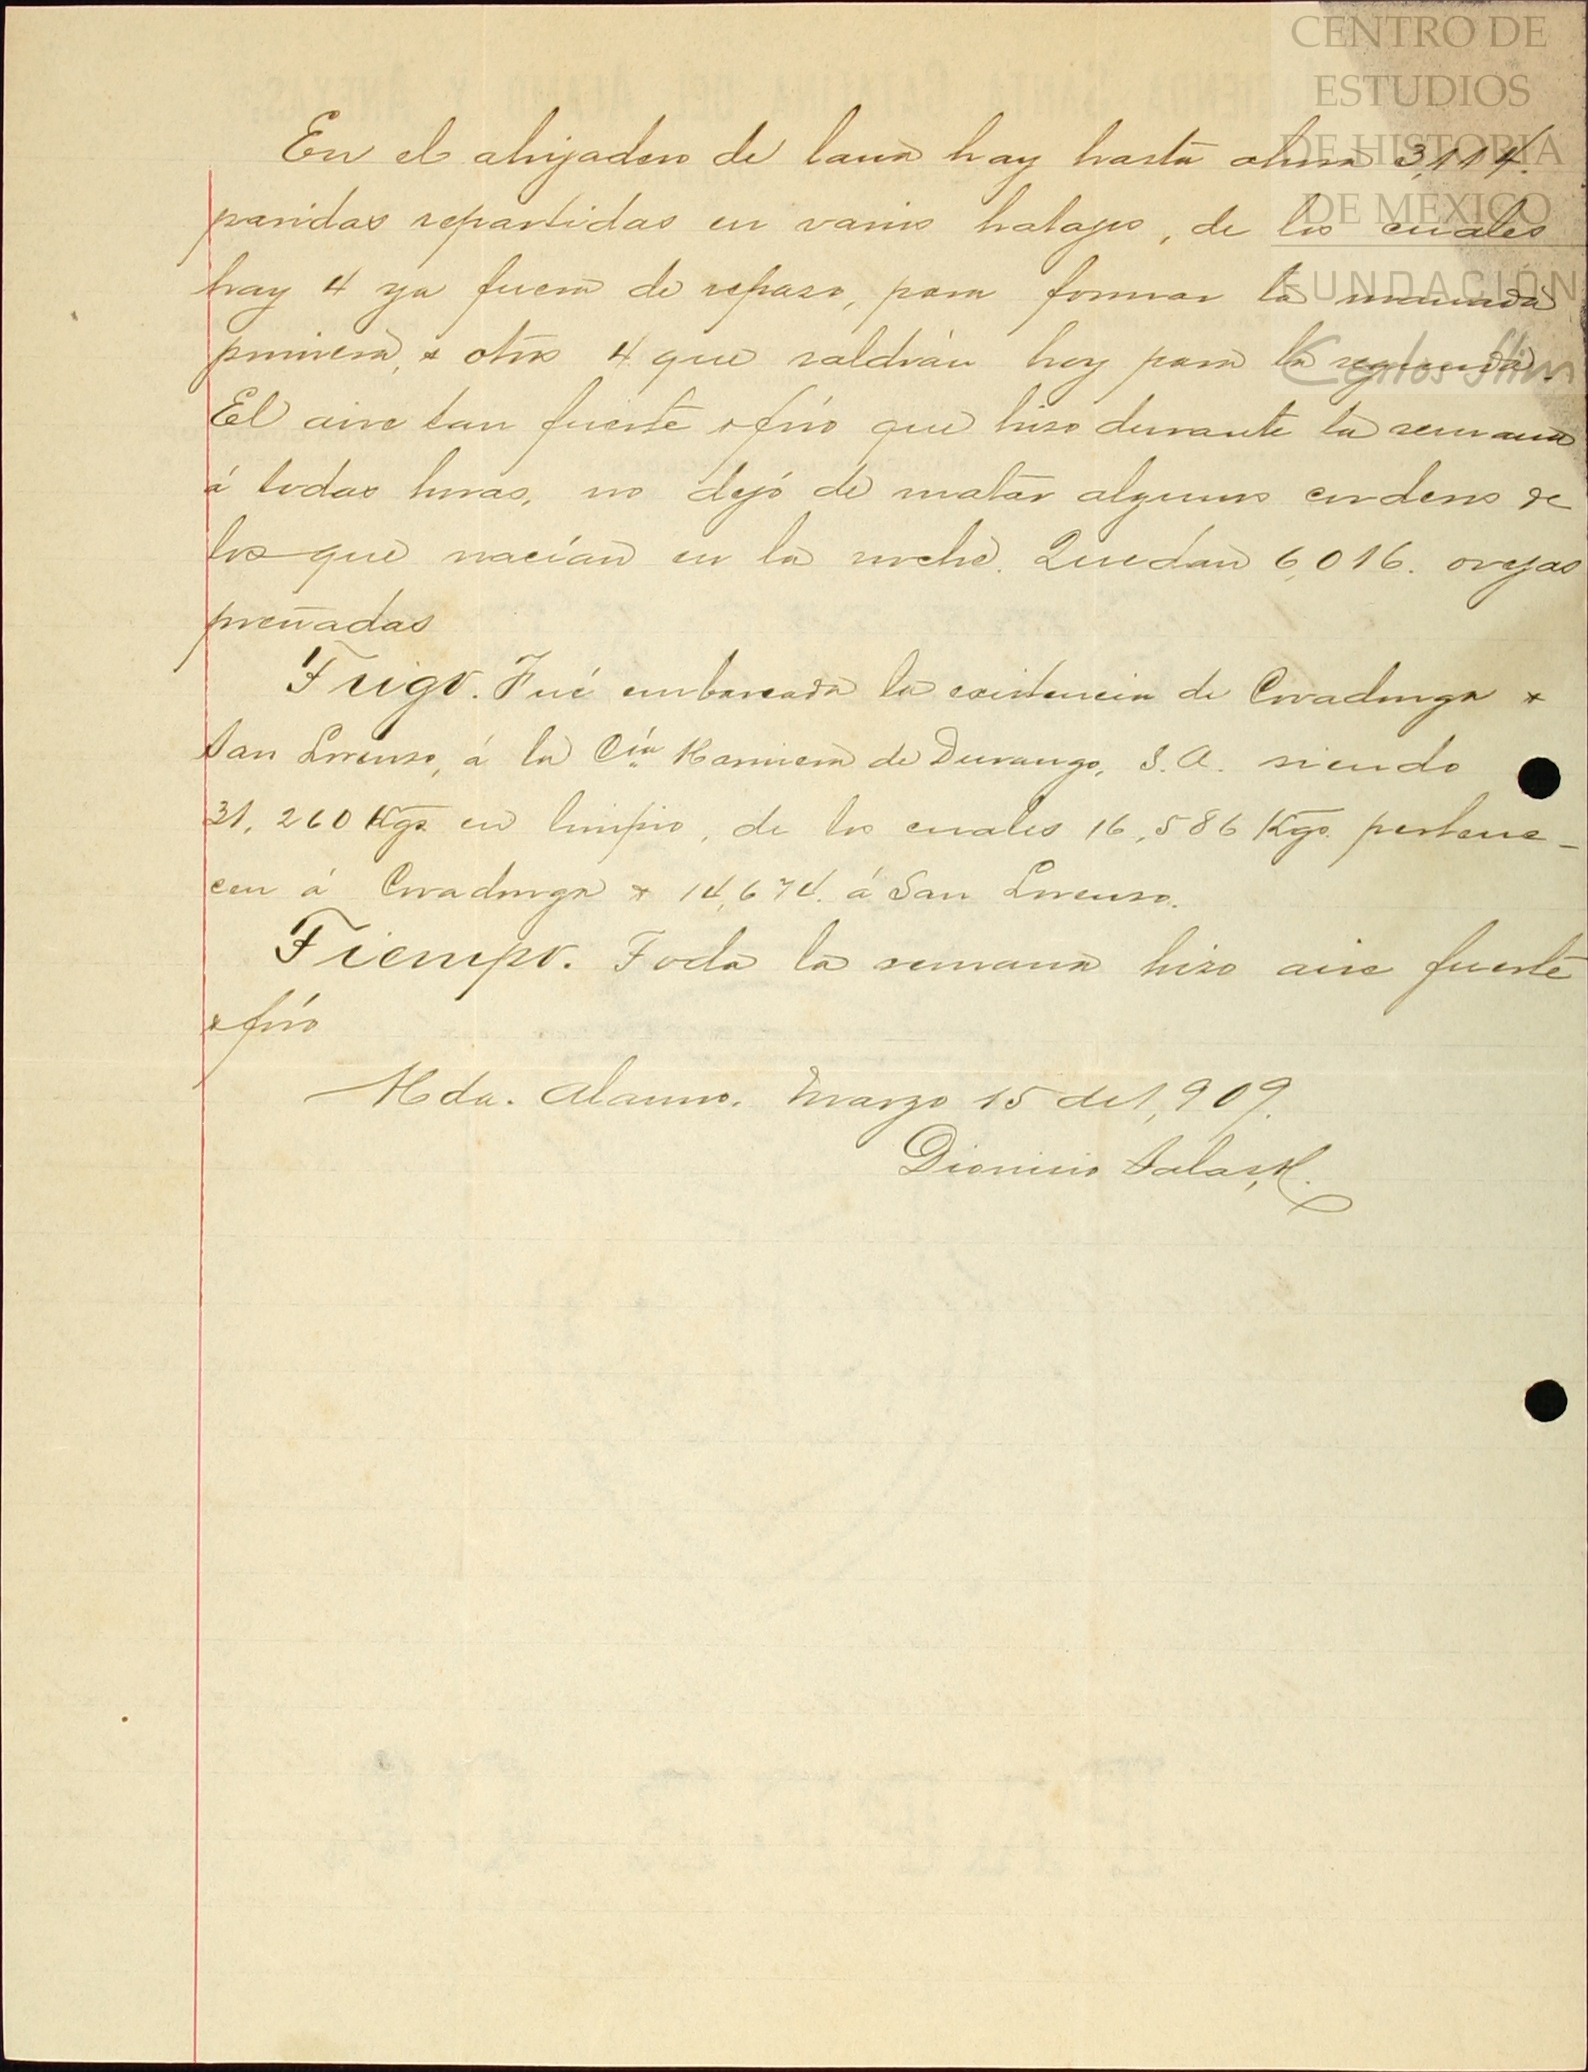 CENTRO DE
ESTUDIOS
DE HISTORIA
DE MÉXICO
FUNDACIÓN
Carlos Slim
En el ahijadero de lana hay hasta ahora 3,114.
paridas repartidas en varios hatajos, de los cuales
hay 4 ya fuera de repaso, para formar la manada
primera, & otros 4 que saldrán hoy para la segunda.
El aire tan fuerte & frío que hizo durante la semana
á todas horas, no dejó de matar algunos corderos de
los que nacían en la noche. Quedan 6,016. ovejas
preñadas
Trigo. Fué embarcada la existencia de Covadonga &
San Lorenzo, á la Cía Harinera de Durango, S. A. siendo
31,260 Kgs en limpio, de los cuales 16,586 Kgs. pertene-
cen á Covadonga & 14,674. á San Lorenzo.
Tiempo. Toda la semana hizo aire fuerte
& frío
Hda. Alamo. Marzo 15 de 1,909.
Dionicio Salas, H.